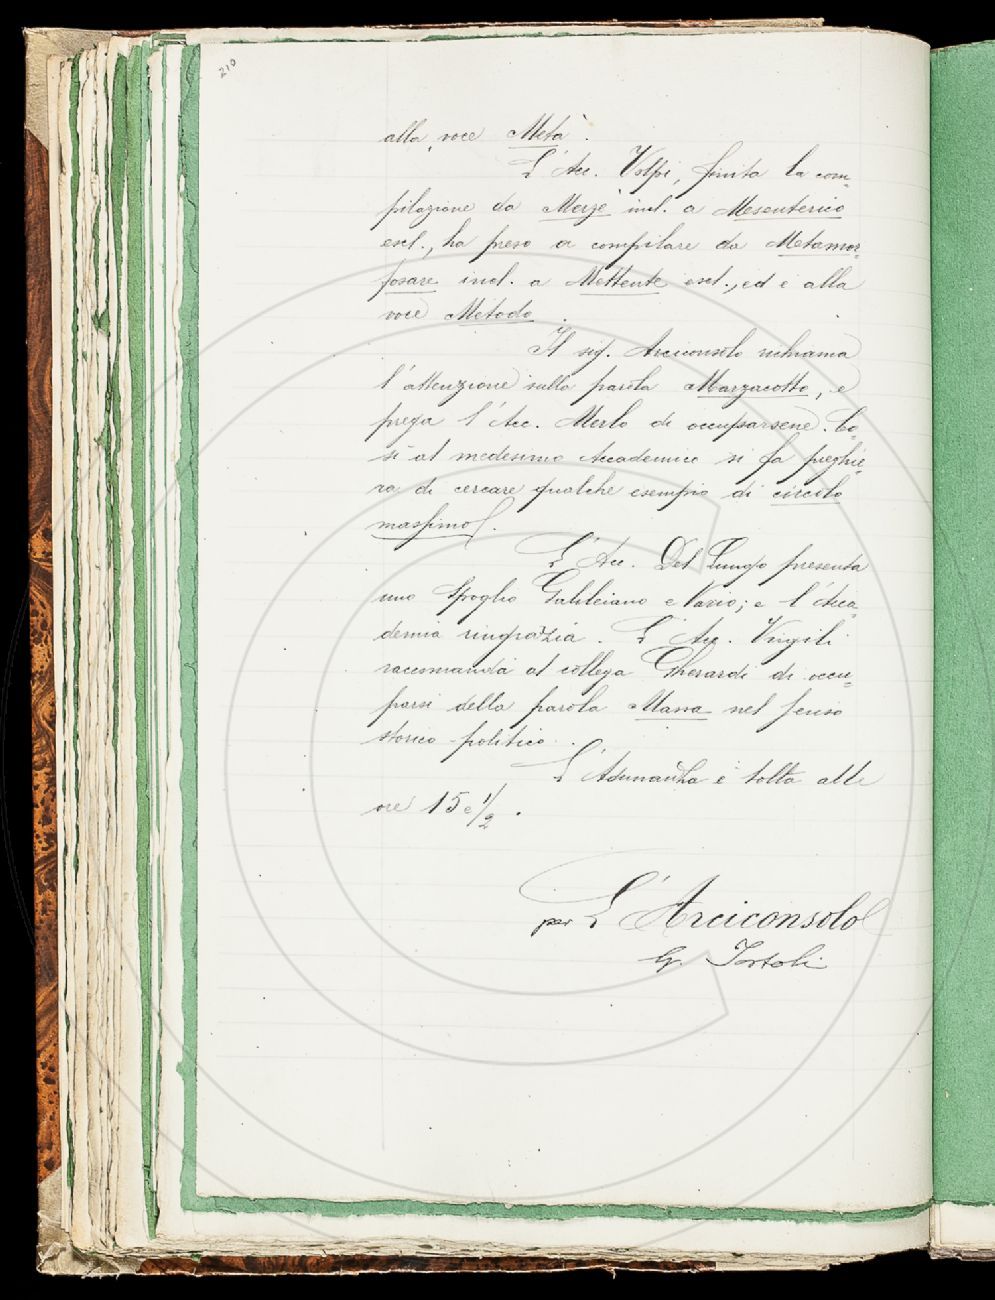 210
alla voce Metà.
L'Acc. Volpi, finita la com-
pilazione da Merzè incl. a Mesenterico
escl., ha preso a compilare da Metamor-
fosare incl. a Mettente escl., ed è alla
voce Metodo.
Il sig. Arciconsolo richiama
l'attenzione sulla parola Marzacotto, e
prega l'Acc. Merlo di occuparsene. Co-
sì al medesimo Accademico si fa preghie-
ra di cercare qualche esempio di circolo
massimo.
L'Acc. Del Lungo presenta
uno Spoglio Galileiano e Vario; e l'Acca-
demia ringrazia. L'Acc. Virgili
raccomanda al collega Gherardi di occu-
parsi della parola Massa nel senso
storico-politico.
L'Adunanza è tolta alle
ore 15 e 1/2.
per L'Arciconsolo
G. Tortoli